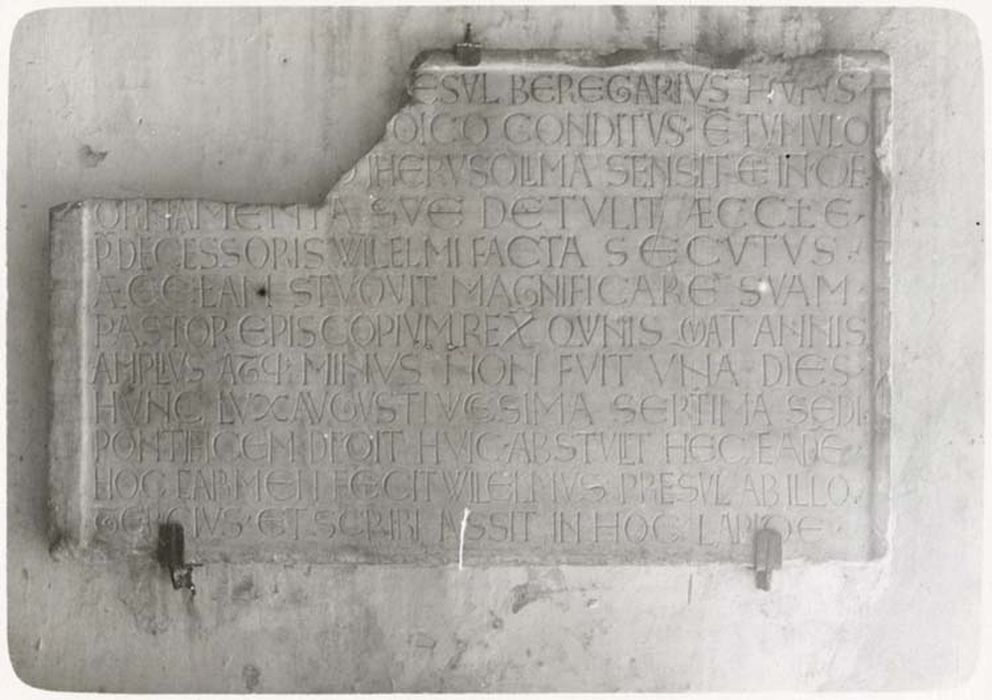 ESVL BEREGARIVS HVIVS
OICO CONDITVS· Ē TVMVLO
IHERVSOLIMA SENSIT
ORNAMENTA SVE DETVLIT ÆCCŁE·
P̄DECESSORIS WILELMI FACTA SECVTVS ·
ÆCCŁAM MAGNIFICARE SVAM
PASTOR EPISCOPIVM REX̄ ANNIS
AMPLIVS MINVS NON FVIT VNA DIES·
HVNC LVX AVGVSTI VIGESIMA SEPTIMA SEDI·
PONTIFICEM HVIC·ABSTVLIT HEC EADĒ·
HOC CARMEN FECIT WILELMVS PRESVL AB ILLO·
ET SCRIBI IVSSIT IN HOC LAPIDE ·